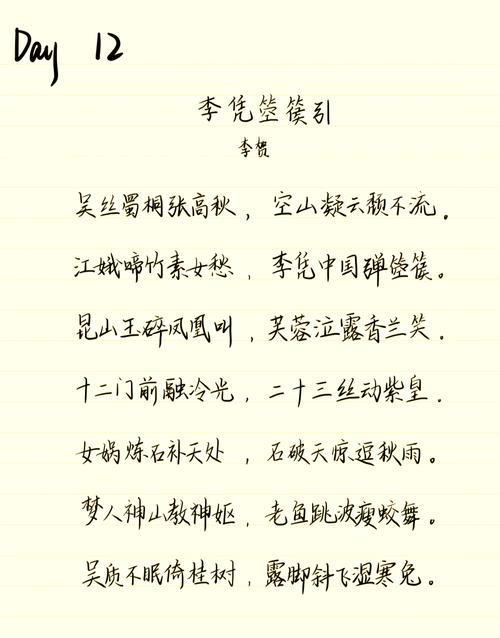 Day 12
李凭箜篌引
李贺
吴丝蜀桐张高秋，空山凝云颓不流．
江娥啼竹素女愁，李凭中国弹箜篌。
昆山玉碎凤凰叫，芙蓉泣露香兰笑．
十二门前融冷光，二十三丝动紫皇．
女娲炼石补天处，石破天惊逗秋雨。
梦人神山教神妪，老鱼跳波瘦蛟舞。
吴质不眠倚桂树，露脚斜飞湿寒兔。